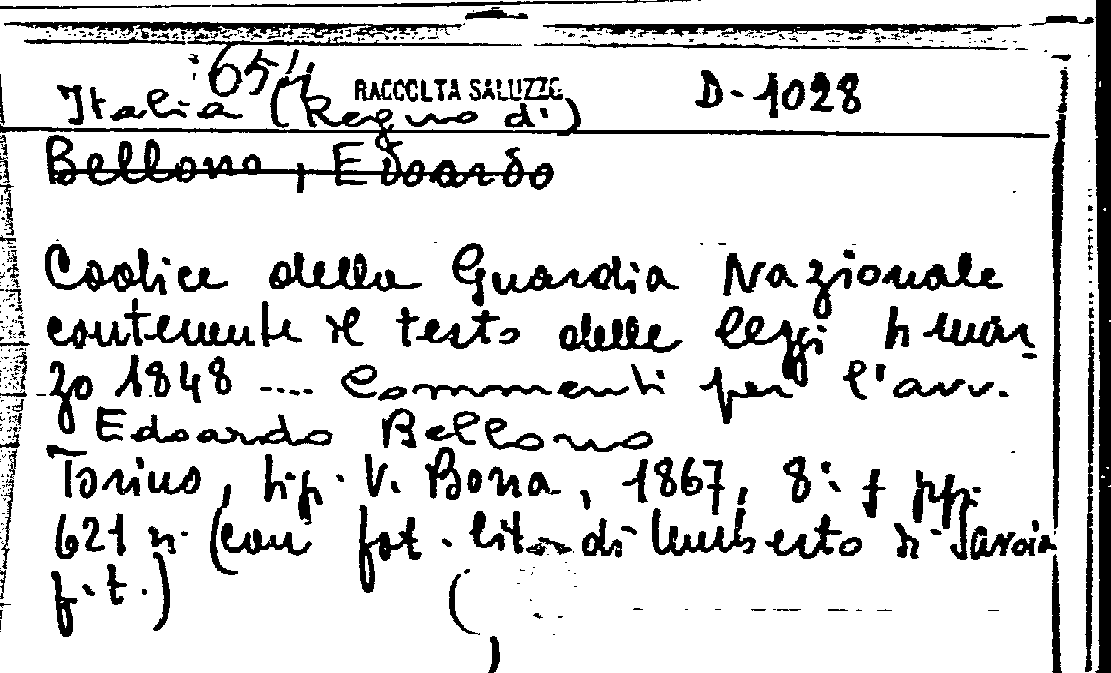 654 RACCOLTA SALUZZO D-1028
Italia (Regno di)
Bellono, Edoardo
Codice della Guardia Nazionale
contenente il testo delle leggi 4 mar-
zo 1848 .... Commenti per l'avv.
Edoardo Bellono
Torino, tip. V. Bona, 1867, 8° f pp.
621 n. (con fot. lit. di Umberto di Savoia
f.t.)